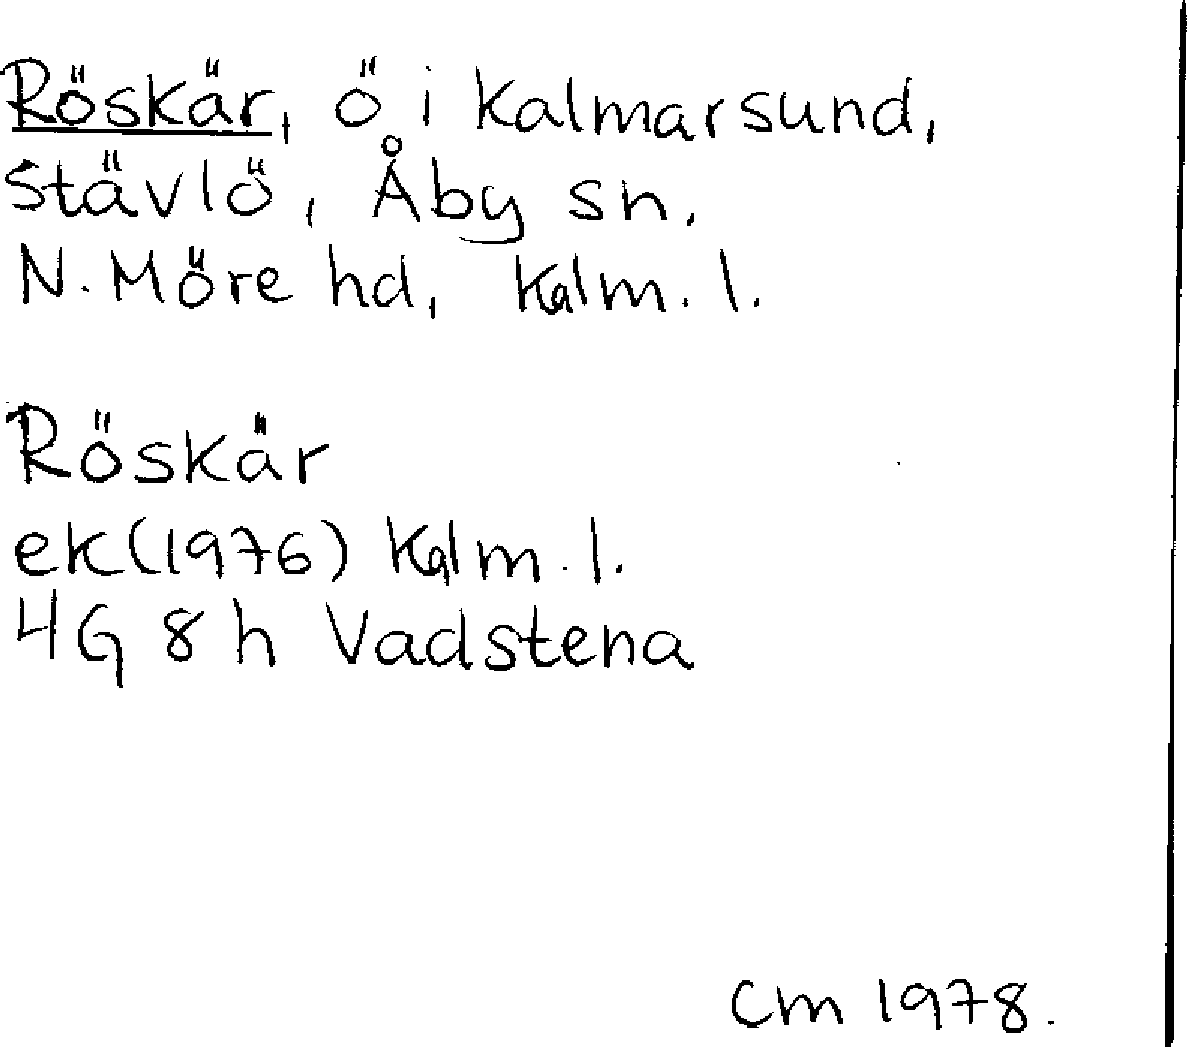 Röskär, ö i Kalmarsund,
Stävlö, Åby sn.
N. Möre hd, Kalm. l.
Röskär
ek(1976) Kalm. l.
4G 8 h Vadstena
Cm 1978.